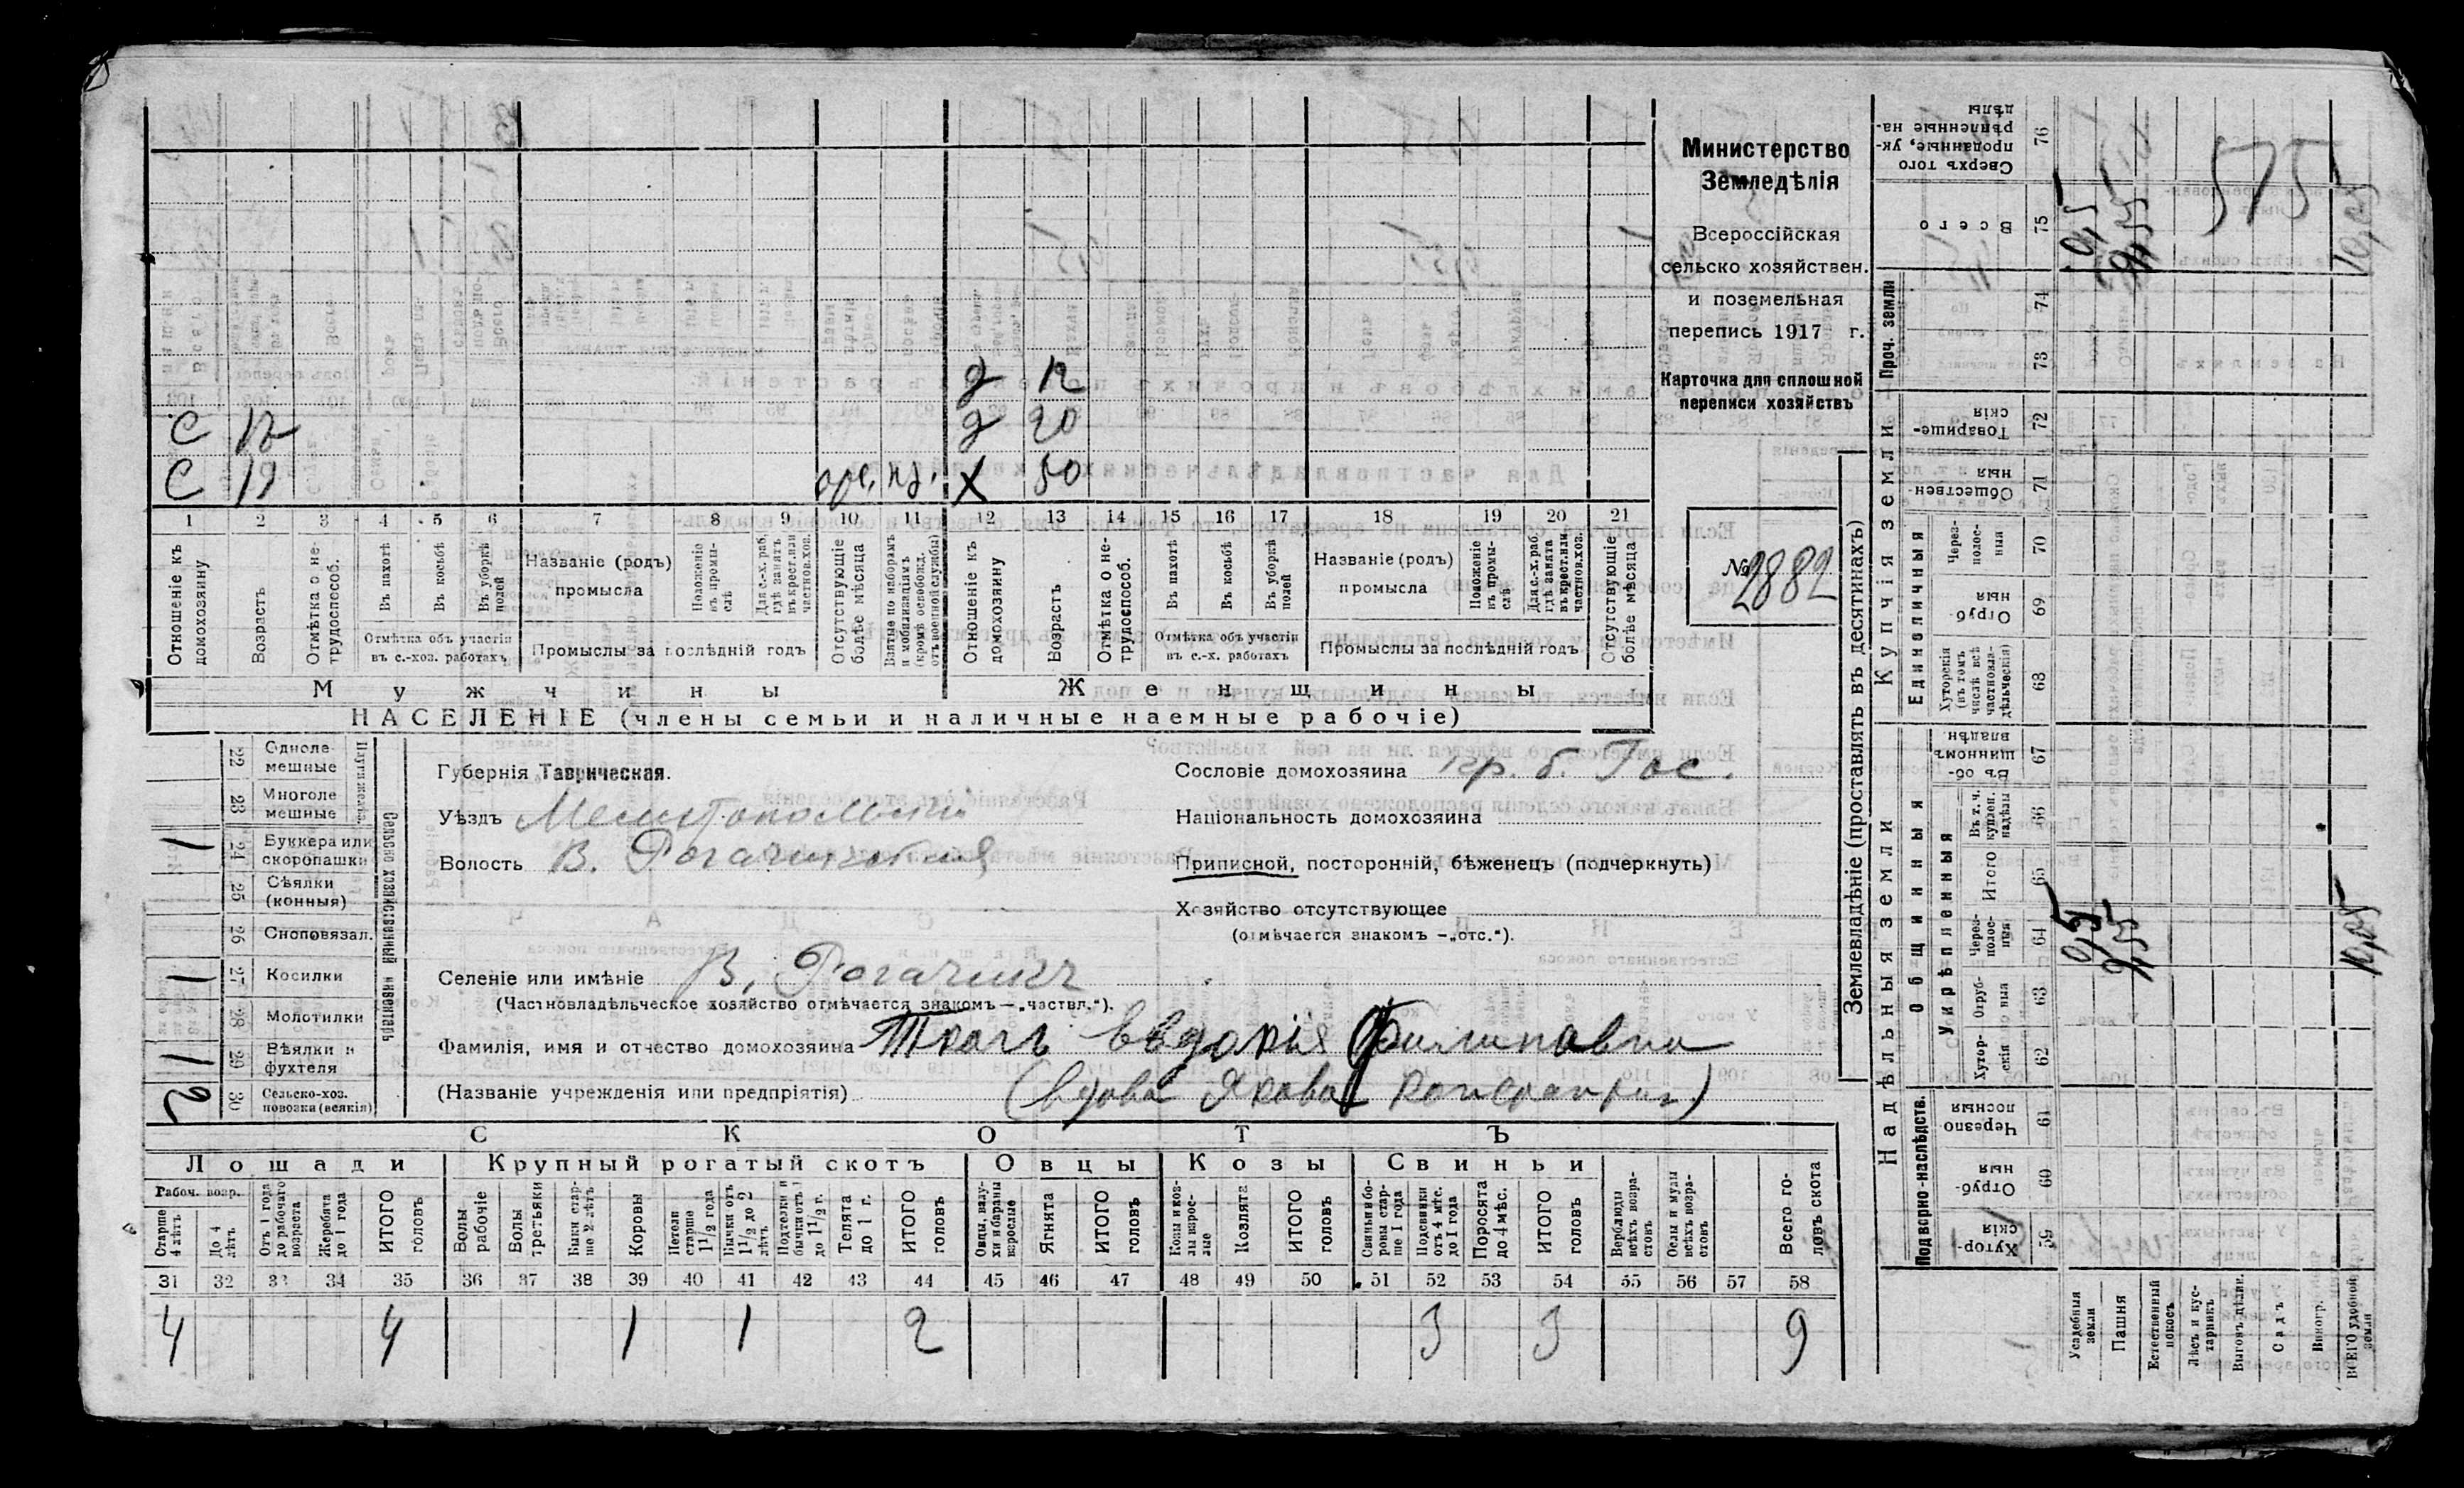 Министерство
Земледѣлія
Всероссійская
сельско хозяйствен.
и поземельная
перепись 1917 г.
Карточка для сплошной
переписи хозяйствъ
№ 2882
д 12
С 12 д 20
С 19 Х 50
1 2 3 4 5 6 7 8 9 10 11 12 13 14 15 16 17 18 19 20 21
Отношеніе къ домохозяину
Возрастъ
Отмѣтка о не-трудоспособ.
Въ пахотѣ
Въ косьбѣ
Въ уборкѣ полей
Отмѣтка объ участіи въ с.-хоз. работахъ
Названіе (родъ) промысла
Положеніе въ промы-слѣ
Для с.-х. раб. гдѣ занятъ въ крест. или частнов. хоз.
Промыслы за послѣдній годъ
Отсутствующіе болѣе мѣсяца
Взятые по наборамъ и мобилизаціямъ (кромѣ освобожд. отъ военной службы)
Отношеніе къ домохозяину
Возрастъ
Отмѣтка о не-трудоспособ.
Въ пахотѣ
Въ косьбѣ
Въ уборкѣ полей
Отмѣтка объ участіи въ с.-х. работахъ
Названіе (родъ) промысла
Положеніе въ промы-слѣ
Для с.-х. раб. гдѣ занята въ крест. или частнов. хоз.
Промыслы за послѣдній годъ
Отсутствующіе болѣе мѣсяца
Мужчины Женщины
НАСЕЛЕНІЕ (члены семьи и наличные наемные рабочіе)
Сельско хозяйственный инвентарь
22 Одноле-мешные
23 Многоле мешные
24 Буккера или скоропашки 1
25 Сѣялки (конныя)
26 Сноповязал.
27 Косилки 1
28 Молотилки
29 Вѣялки и фухтеля 1
30 Сельско-хоз. повозки (всякія) 2
Губернія Таврическая.
Уѣздъ Мелитопольскій
Волость В. Рогачикская
Селеніе или имѣніе В. Рогачикъ
(Частновладѣльческое хозяйство отмѣчается знакомъ —„частвл.“).
Сословіе домохозяина кр. б. Гос.
Національность домохозяина
Приписной, посторонній, бѣженецъ (подчеркнуть)
Хозяйство отсутствующее
(отмѣчается знакомъ —„отс.“).
Фамилія, имя и отчество домохозяина Ткачъ Евдокія Филиповна
(Названіе учрежденія или предпріятія) (вдова Якова
СКОТЪ
Лошади Крупный рогатый скотъ Овцы Козы Свиньи
Рабоч. возр.
Старше 4 лѣтъ
До 4 лѣтъ
Отъ 1 года до рабочаго возраста
Жеребята до 1 года
ИТОГО головъ
Волы рабочіе
Волы третьяки
Быки стар-ше 2 лѣтъ
Коровы
Нетели старше 1 1/2 года
Бычки отъ 1 1/2 до 2 лѣтъ
Подтелки и бычки отъ 1 до 1 1/2 г.
Телята до 1 г.
ИТОГО головъ
Овцы, валу-хи и бараны взрослые
Ягнята
ИТОГО головъ
Козы и коз-лы взрос-лые
Козлята
ИТОГО головъ
Свиньи и бо-ровы стар-ше 1 года
Подсвинки отъ 4 мѣс. до 1 года
Поросята до 4 мѣс.
ИТОГО головъ
Верблюды всѣхъ возра-стовъ
Ослы и мулы всѣхъ возра-стовъ
Всего го-ловъ скота
31 32 33 34 35 36 37 38 39 40 41 42 43 44 45 46 47 48 49 50 51 52 53 54 55 56 57 58
4 4 1 1 2 3 3 9
Землевладѣніе (проставлять въ десятинахъ)
Надѣльныя земли
Купчія земли
Проч. земли
Подворно-наслѣдств.
Общинныя
Укрѣпленныя
Единоличныя
59 Хутор-скія
60 Отруб-ныя
61 Черезпо лосныя
62 Хутор-скія
63 Отруб-ныя
64 Через-полос-ныя
65 Итого
66 Въ т. ч. куплен. надѣлы
67 Въ об-щинномъ владѣн.
68 Хуторскія (въ томъ числѣ всѣ частновла-дѣльческія)
69 Отруб ныя
70 Через-полос-ныя
71 Обществен-ныя
72 Товарище-скія
73
74
75 Всего
76 Сверхъ того проданные, ук-рѣпленные на-дѣлы
Усадебныя земли
Пашня
Естественный покосъ
Лѣсъ и кус-тарникъ
Выгонъ дѣлян.
Садъ
Виногр.
ВСЕГО удобной земли
575